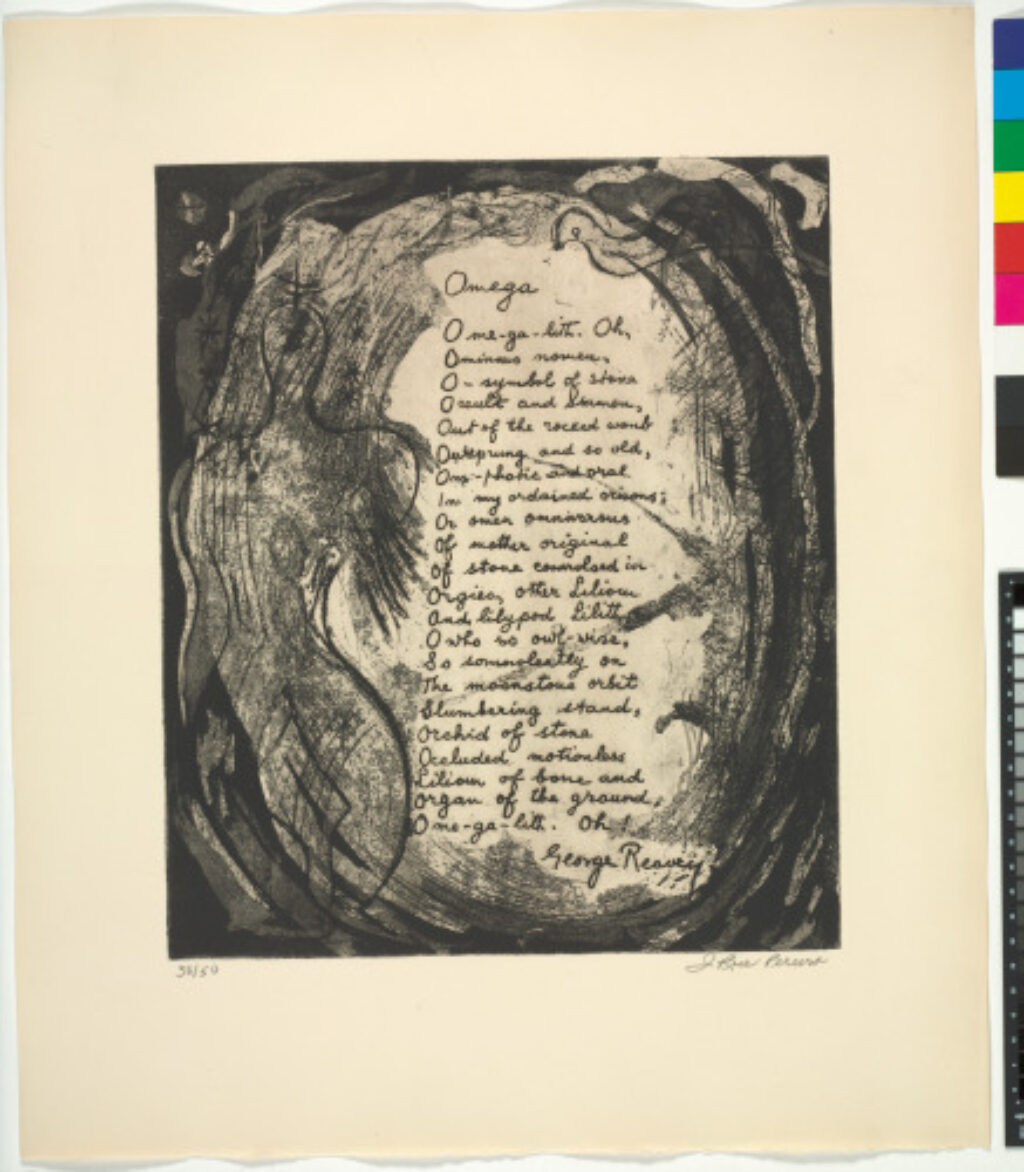 Omega
O me-ga-lith. Oh,
Ominous nomen,
O-symbol of stone
Occult and
Out of the rocked womb
Outsprung and so old,
and oral
In my ordained orisons;
Or omen
Of mother original
Of stone in
Orgies, other Lilium
And lilypod Lilith,
O who so owl-wise,
So somnolently on
The moonstone orbit
Slumbering stand,
Orchid of stone
Occluded motionless
Lilium of bone and
organ of the ground,
O me-ga-lith. Oh!
George Reavey
/50
I Rice Pereira